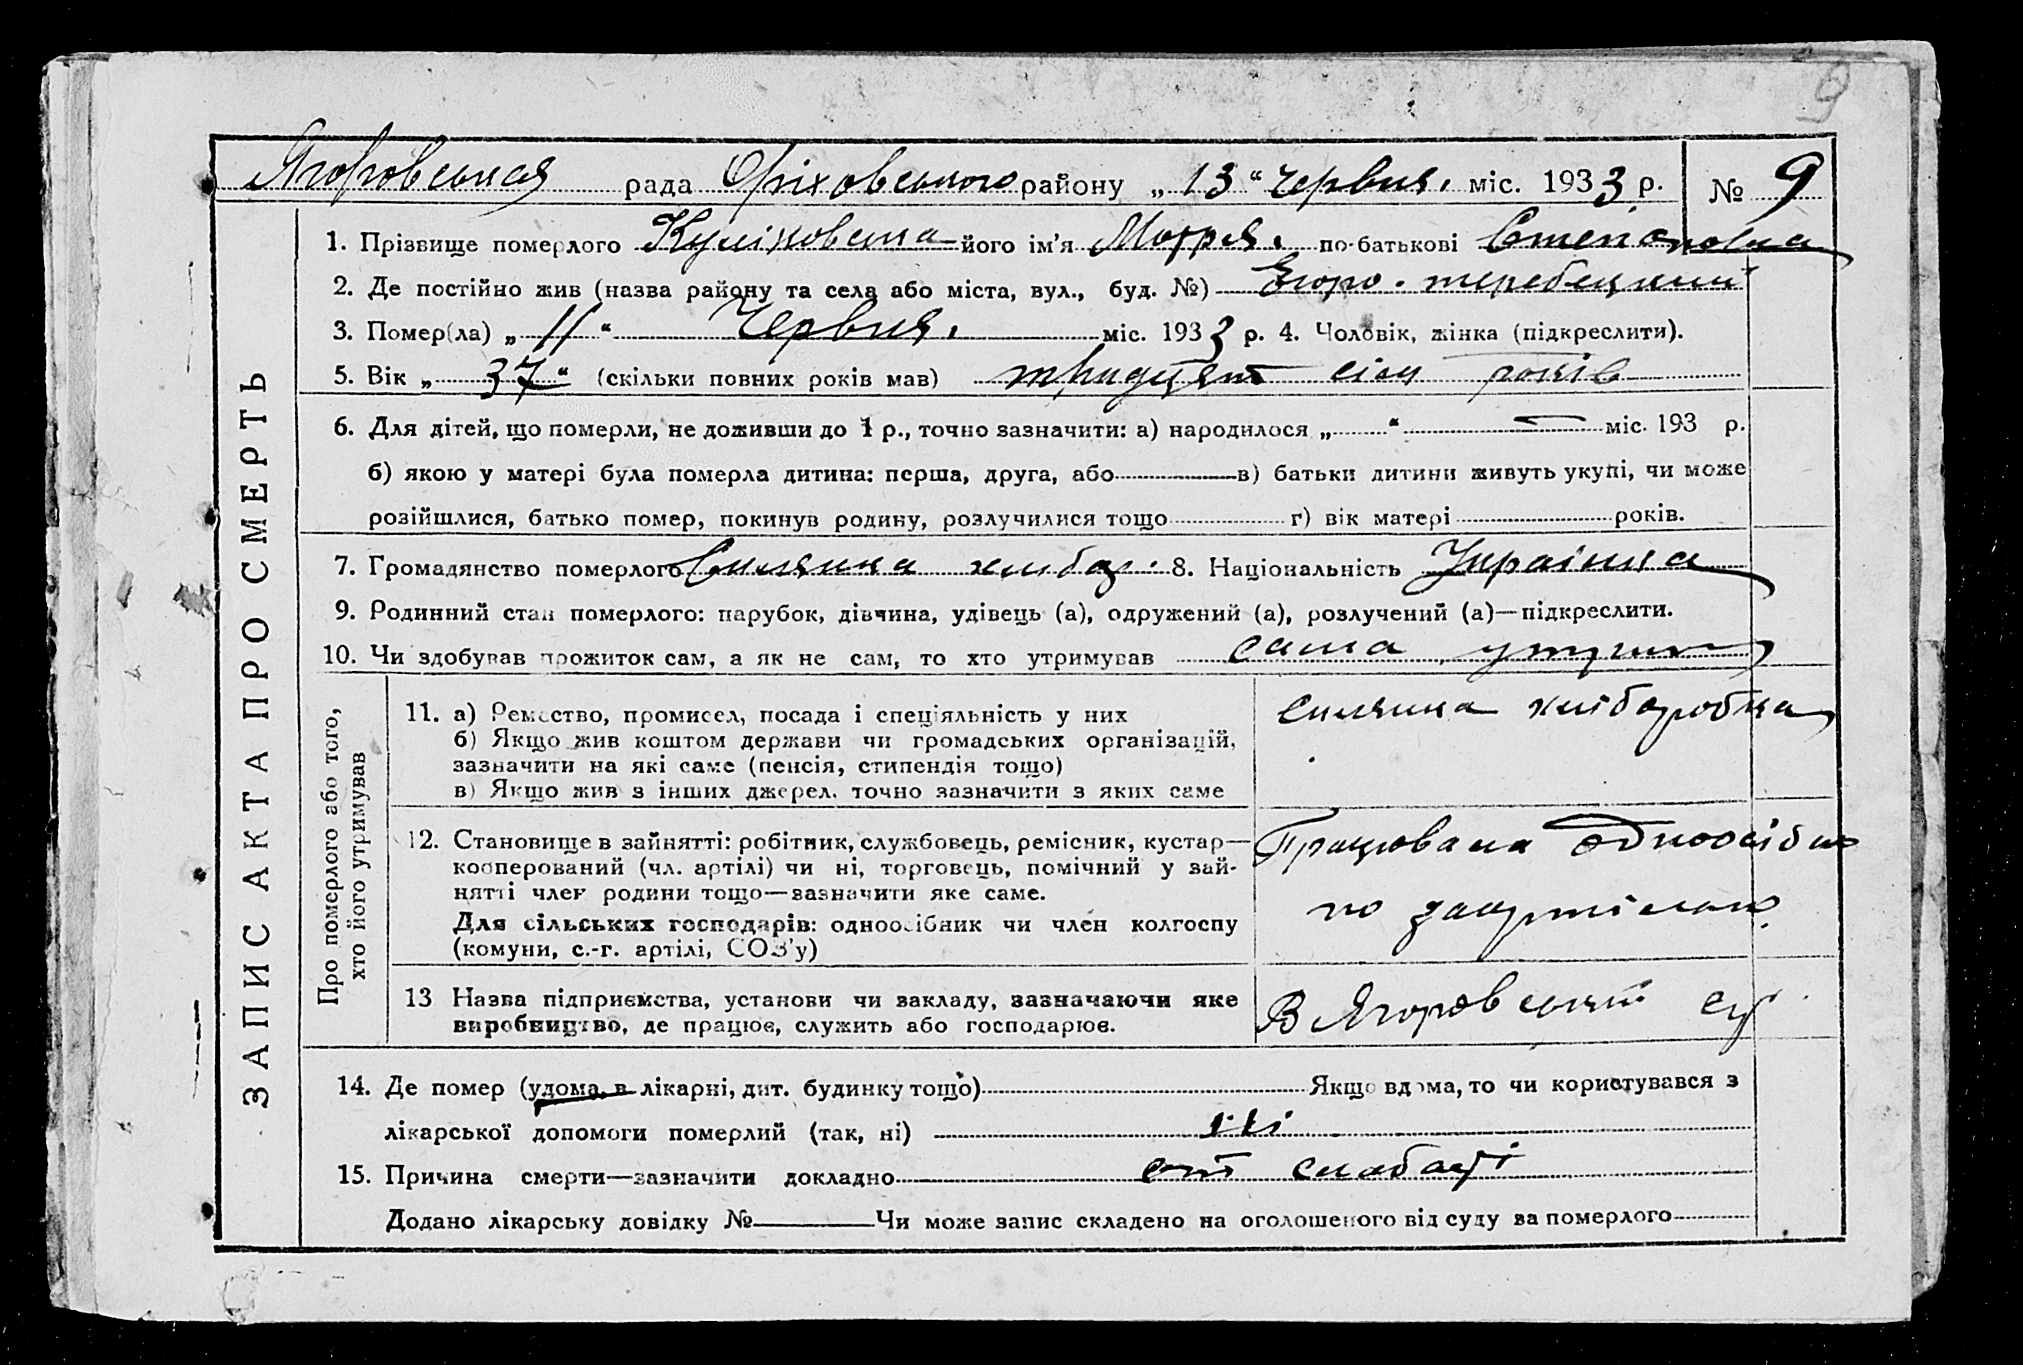 9
Ягоровськая рада Оріховського району „ 13 “ червня. міс. 1933 р. № 9
1. Прізвище померлого Куліковська його ім'я Мотря. по-батькові Степановна
2. Де постійно жив (назва району та села або міста, вул., буд. №)
3. Помер(ла) „ 11 “ Червня. міс. 1933 р. 4. Чоловік, жінка (підкреслити).
5. Вік „ 37 “ (скільки повних років мав) тридцять сім років
6. Для дітей, що померли, не доживши до 1 р., точно зазначити: а) народилося „ “ — міс. 193 р.
б) якою у матері була померла дитина: перша, друга, або в) батьки дитини живуть укупі, чи може
розійшлися, батько помер, покинув родину, розлучилися тощо г) вік матері років.
7. Громадянство померлого Силянка хліб 8. Національність Українка
9. Родинний стан померлого: парубок, дівчина, удівець (а), одружений (а), розлучений (а)—підкреслити.
10. Чи здобував прожиток сам, а як не сам, то хто утримував сама
ЗАПИС АКТА ПРО СМЕРТЬ
Про померлого або того,
хто його утримував
11. а) Ремество, промисел, посада і спеціяльність у них
б) Якщо жив коштом держави чи громадських організацій,
зазначити на які саме (пенсія, стипендія тощо)
в) Якщо жив з інших джерел, точно зазначити з яких саме
силянка хліборобка
12. Становище в зайнятті: робітник, службовець, ремісник, кустар—
кооперований (чл. артілі) чи ні, торговець, помічний у зай-
нятті член родини тощо—зазначити яке саме.
Для сільських господарів: одноосібник чи член колгоспу
(комуни, с.-г. артілі, СОЗ'у)
Працювала одноосібно
по
13 Назва підприємства, установи чи закладу, зазначаючи яке
виробництво, де працює, служить або господарює.
В Ягоровський с/р
14. Де помер (удома, в лікарні, дит. будинку тощо) Якщо вдома, то чи користувався з
лікарської допомоги померлий (так, ні) ні
15. Причина смерти—зазначити докладно от слабасті
Додано лікарську довідку № Чи може запис складено на оголошеного від суду за померлого